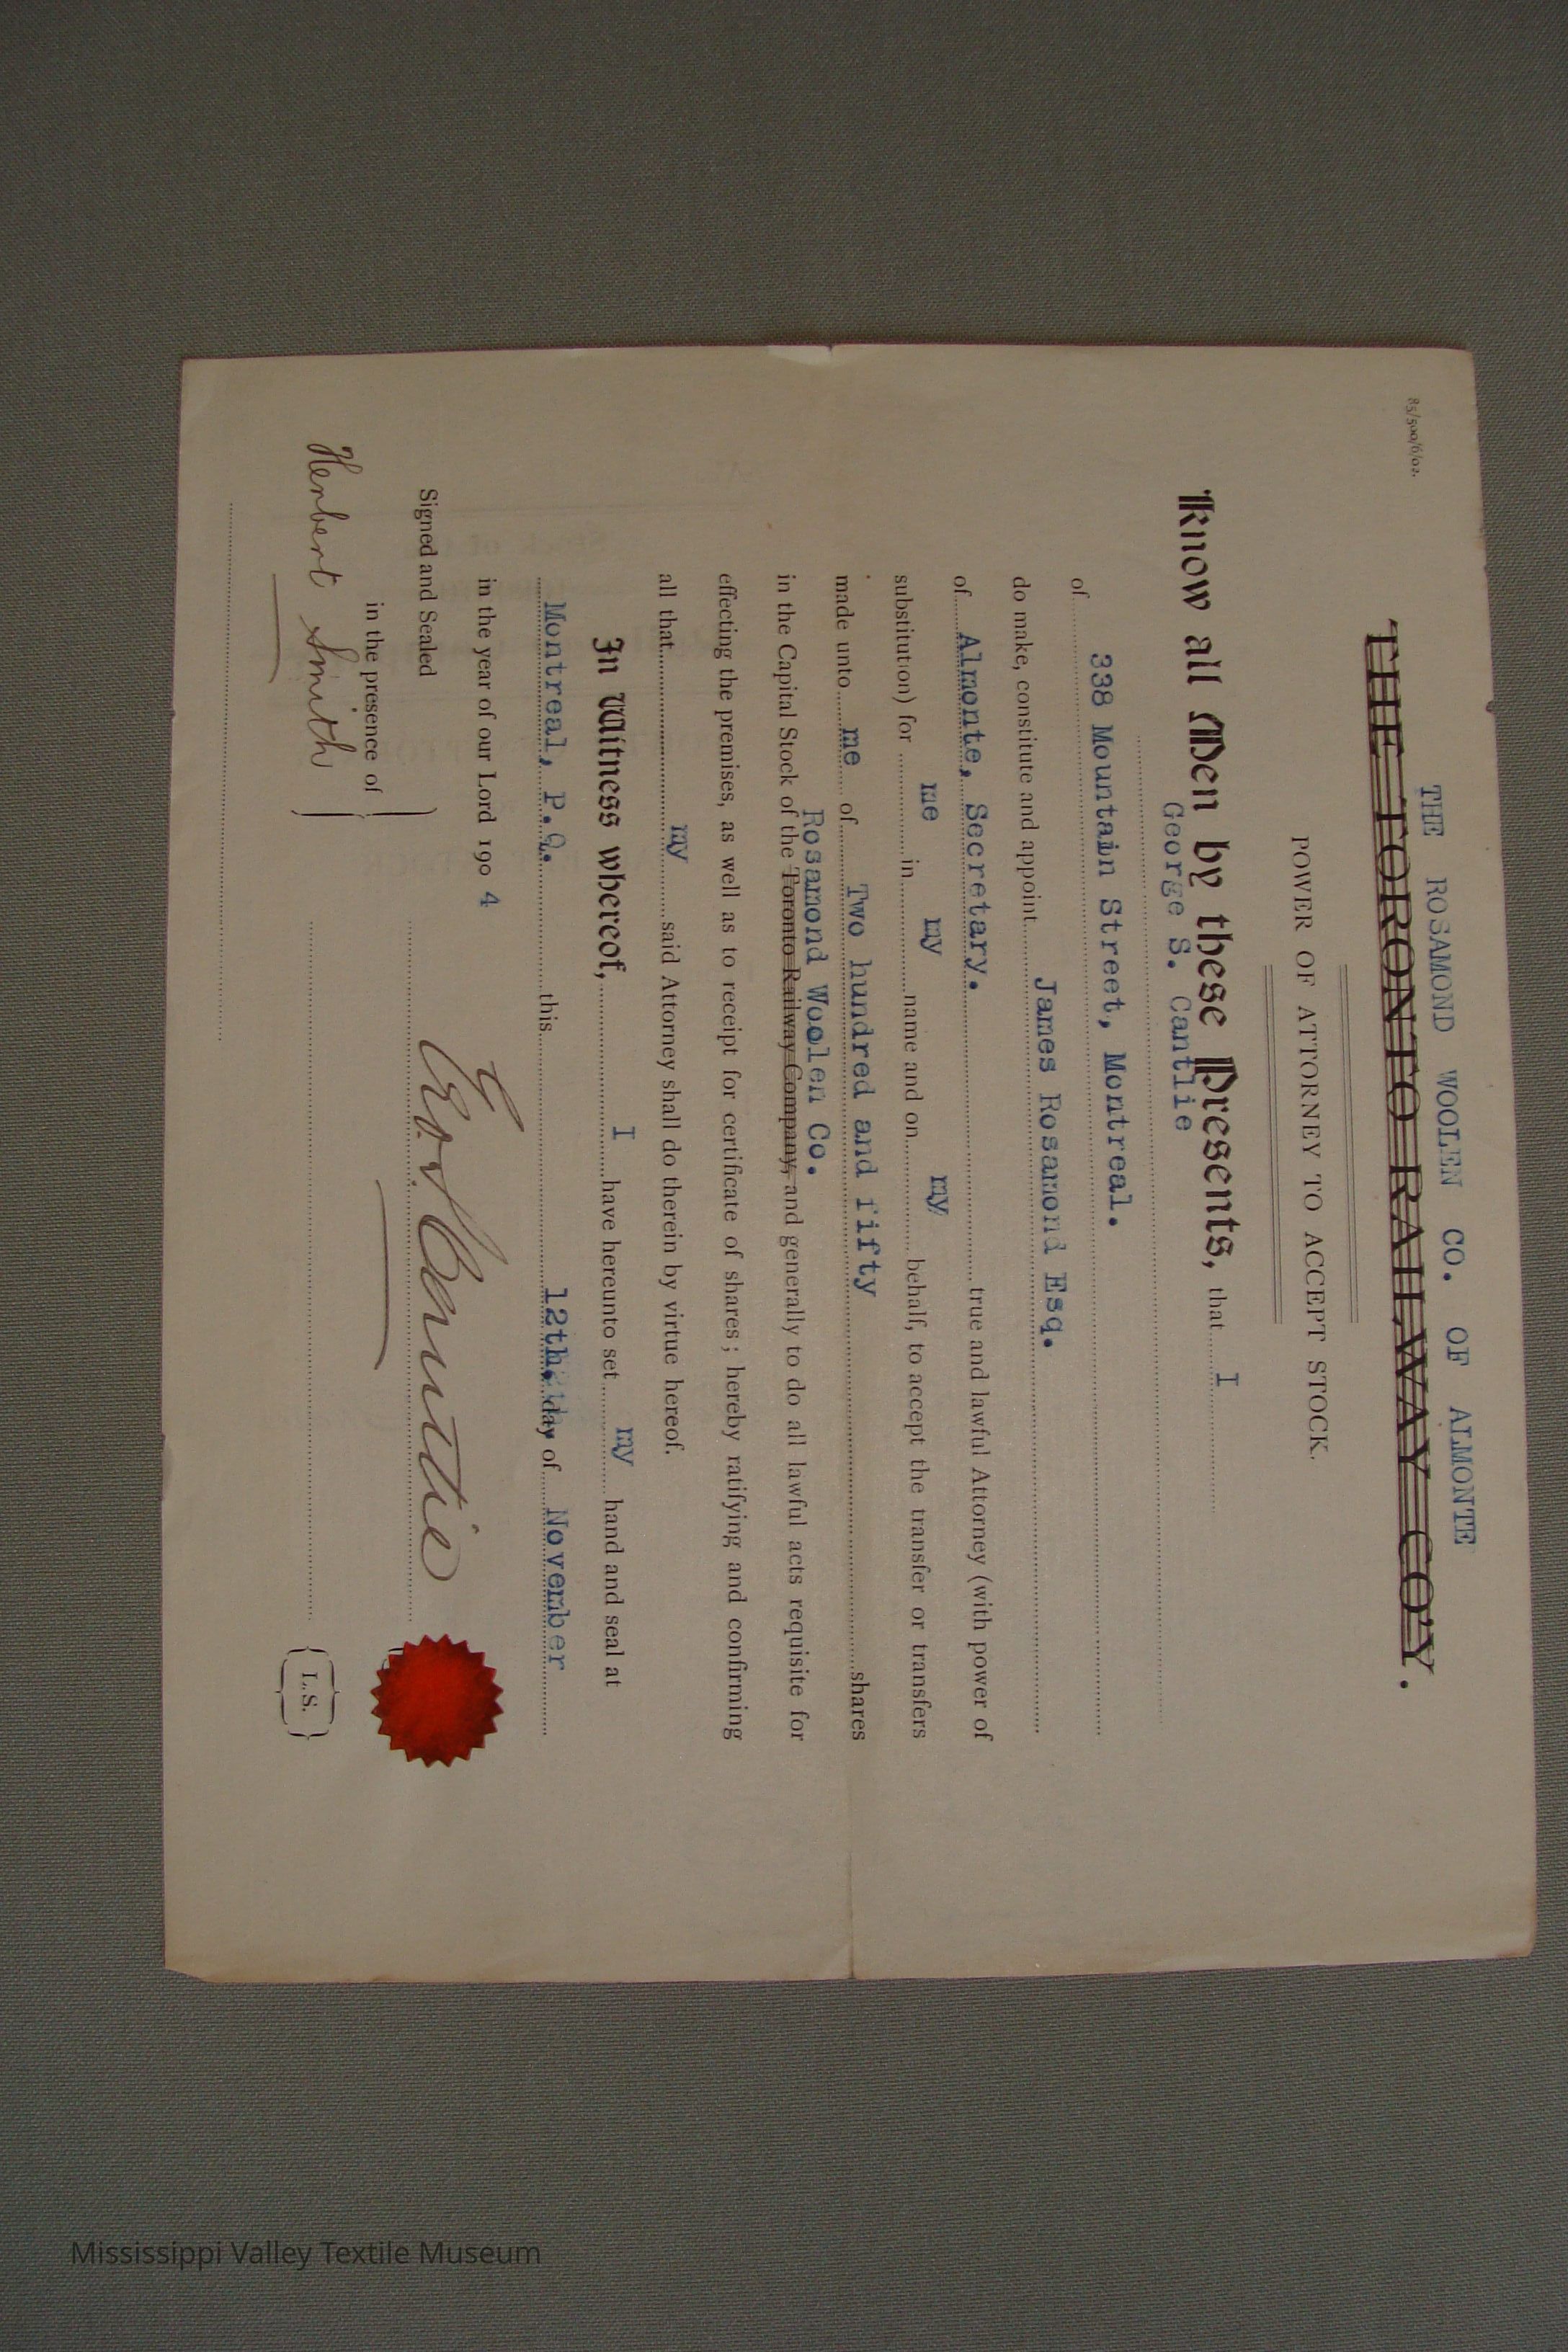 85/500/6/02.
THE ROSAMOND WOOLEN CO. OF ALMONTE
THE TORONTO RAILWAY CO'Y.
POWER OF ATTORNEY TO ACCEPT STOCK.
Know all Men by these Presents, that I
George S. Cantlie
of 338 Mountain Street, Montreal.
do make, constitute and appoint James Rosamond Esq.
of Almonte, Secretary. true and lawful Attorney (with power of
substitution) for me in my name and on my behalf, to accept the transfer or transfers
made unto me of Two hundred and fifty shares
Rosamond Woolen Co.
in the Capital Stock of the Toronto Railway Company, and generally to do all lawful acts requisite for
effecting the premises, as well as to receipt for certificate of shares; hereby ratifying and confirming
all that my said Attorney shall do therein by virtue hereof.
In Witness whereof, I have hereunto set my hand and seal at
Montreal, P.Q. this 12th. day of November
in the year of our Lord 190 4
Signed and Sealed
in the presence of
Herbert Smith
Geo S Cantlie
L.S.
Mississippi Valley Textile Museum